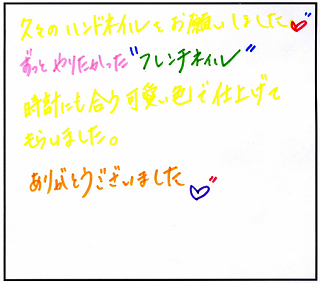 久々のハンドネイルをお願いしました♡"
ずっとやりたかった"フレンチネイル"
時計にも合う可愛い色で仕上げて
もらいました。
ありがとうございました♡"